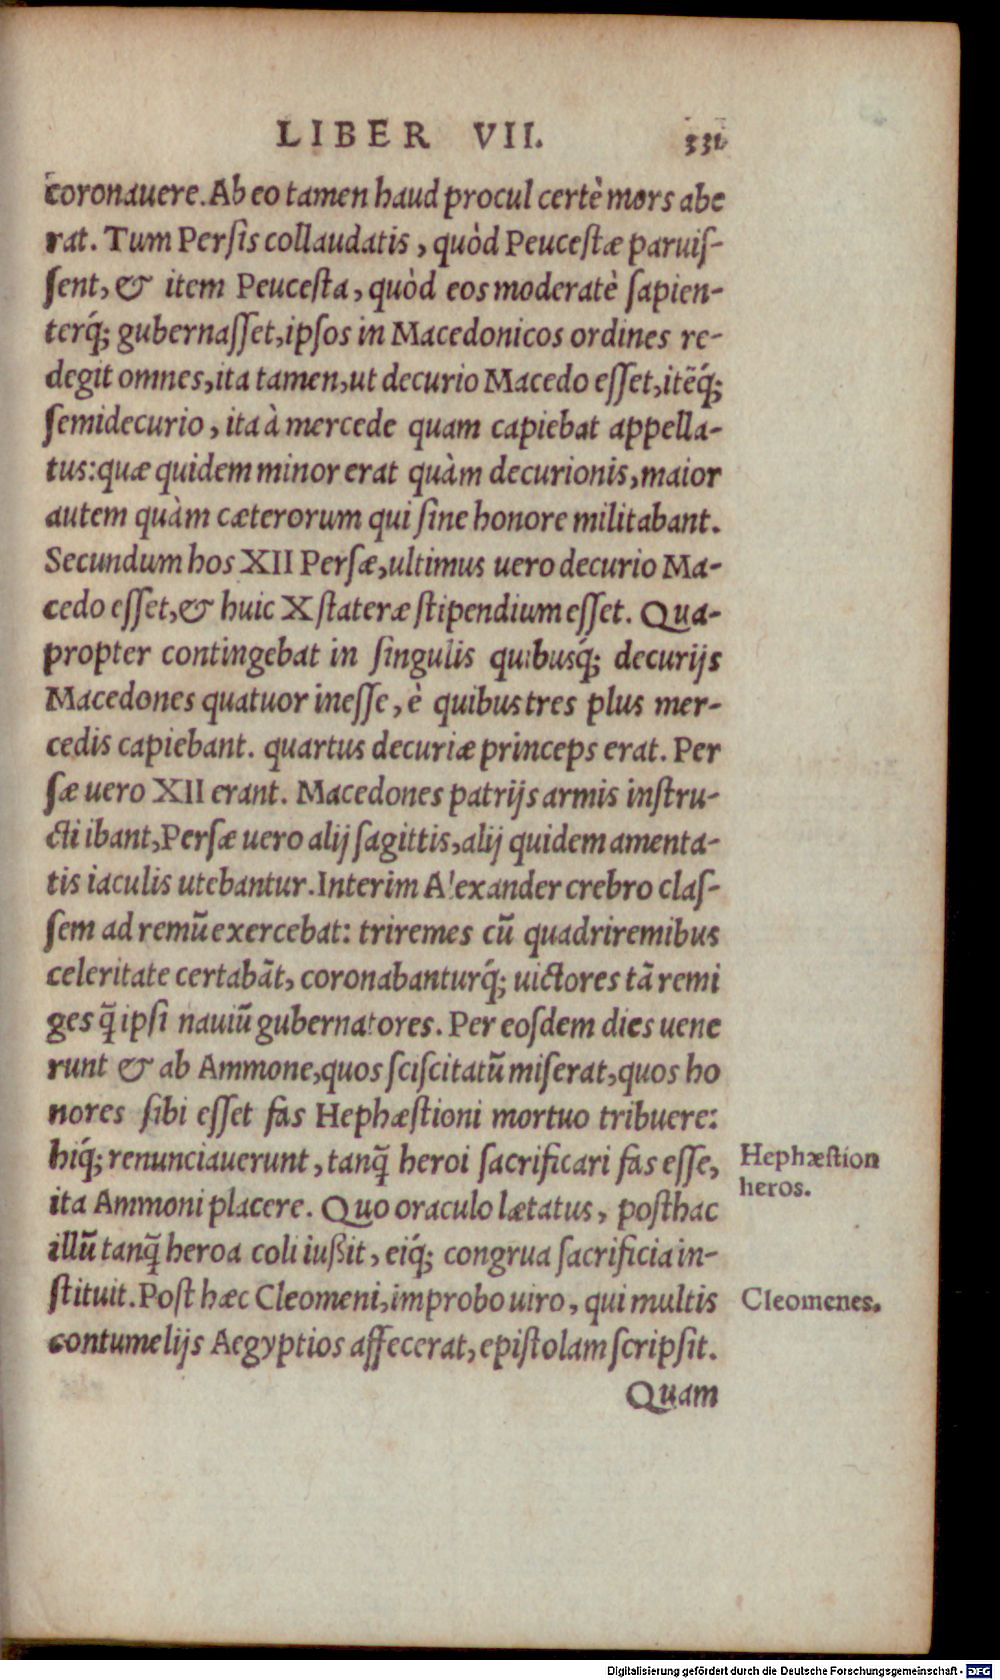 LIBER VII. 331
coronauere. Ab eo tamen haud procul certè mors abe
rat. Tum Persis collaudatis, quòd Peucestæ paruiſ-
ſent, & item Peuceſta, quòd eos moderatè ſapien-
terq́; gubernaſſet, ipſos in Macedonicos ordines re-
degit omnes, ita tamen, ut decurio Macedo eſſet, itẽq́;
ſemidecurio, ita à mercede quam capiebat appella-
tus: quæ quidem minor erat quàm decurionis, maior
autem quàm cæterorum qui ſine honore militabant.
Secundum hos XII Perſæ, ultimus uero decurio Ma-
cedo eſſet, & huic X ſtateræ ſtipendium eſſet. Qua-
propter contingebat in ſingulis quibusq́; decurijs
Macedones quatuor ineſſe, è quibus tres plus mer-
cedis capiebant. quartus decuriæ princeps erat. Per
ſæ uero XII erant. Macedones patrijs armis inſtru-
cti ibant, Perſæ uero alij ſagittis, alij quidem amenta-
tis iaculis utebantur. Interim Alexander crebro claſ-
ſem ad remũ exercebat: triremes cũ quadriremibus
celeritate certabãt, coronabanturq́; uictores tã remi
ges q̃ ipſi nauiũ gubernatores. Per eoſdem dies uene
runt & ab Ammone, quos ſciſcitatũ miſerat, quos ho
nores ſibi eſſet fas Hephæſtioni mortuo tribuere:
hiq́; renunciauerunt, tanq̃ heroi ſacrificari fas eſſe,
ita Ammoni placere. Quo oraculo lætatus, poſthac
illũ tanq̃ heroa coli iußit, eiq́; congrua ſacrificia in-
ſtituit. Poſt hæc Cleomeni, improbo uiro, qui multis
contumelijs Aegyptios affecerat, epiſtolam ſcripſit.
Quam
Hephæſtion
heros.
Cleomenes.
Digitalisierung gefördert durch die Deutsche Forschungsgemeinschaft - DFG